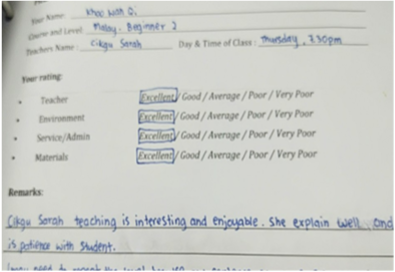 Your Name: Khoo Wan Qi
Course and Level: Malay, Beginner 2
Teachers Name: Cikgu Sarah Day & Time of Class: Thursday, 7.30pm
Your rating:
• Teacher Excellent / Good / Average / Poor / Very Poor
• Environment Excellent / Good / Average / Poor / Very Poor
• Service/Admin Excellent / Good / Average / Poor / Very Poor
• Materials Excellent / Good / Average / Poor / Very Poor
Remarks:
Cikgu Sarah teaching is interesting and enjoyable. She explain well, and
is patience with student.